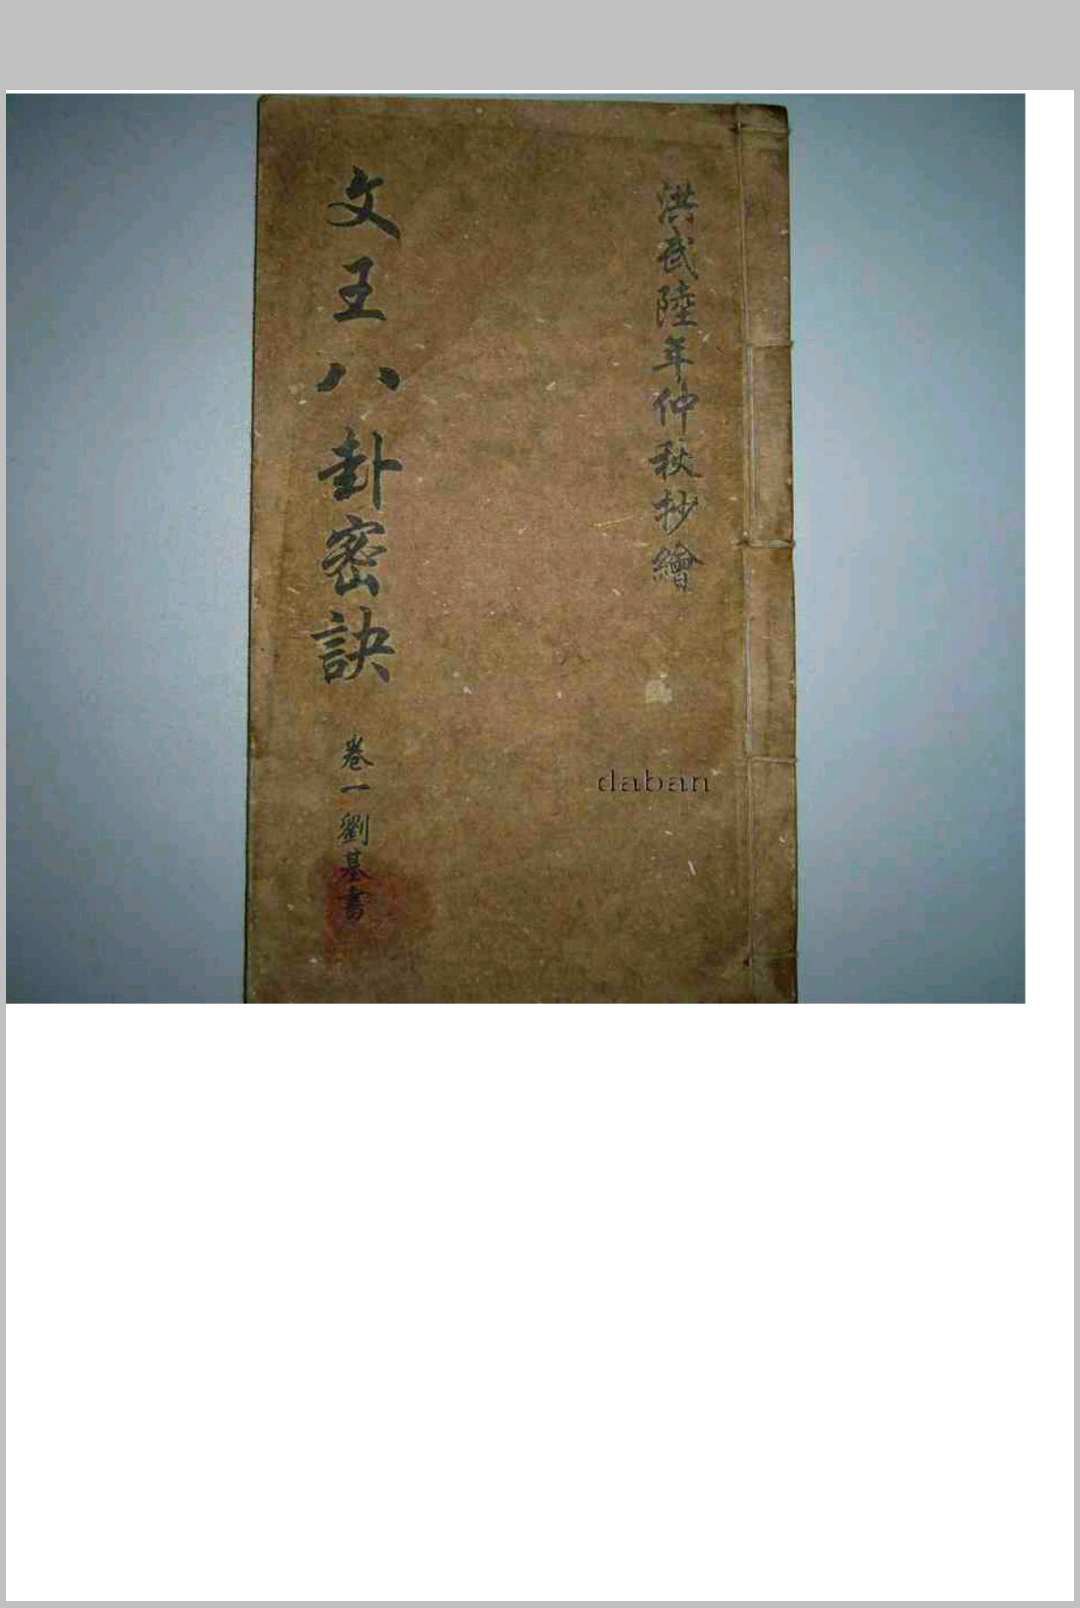 洪武陸年仲秋抄繪
文王八卦密訣
卷一劉基書
daban